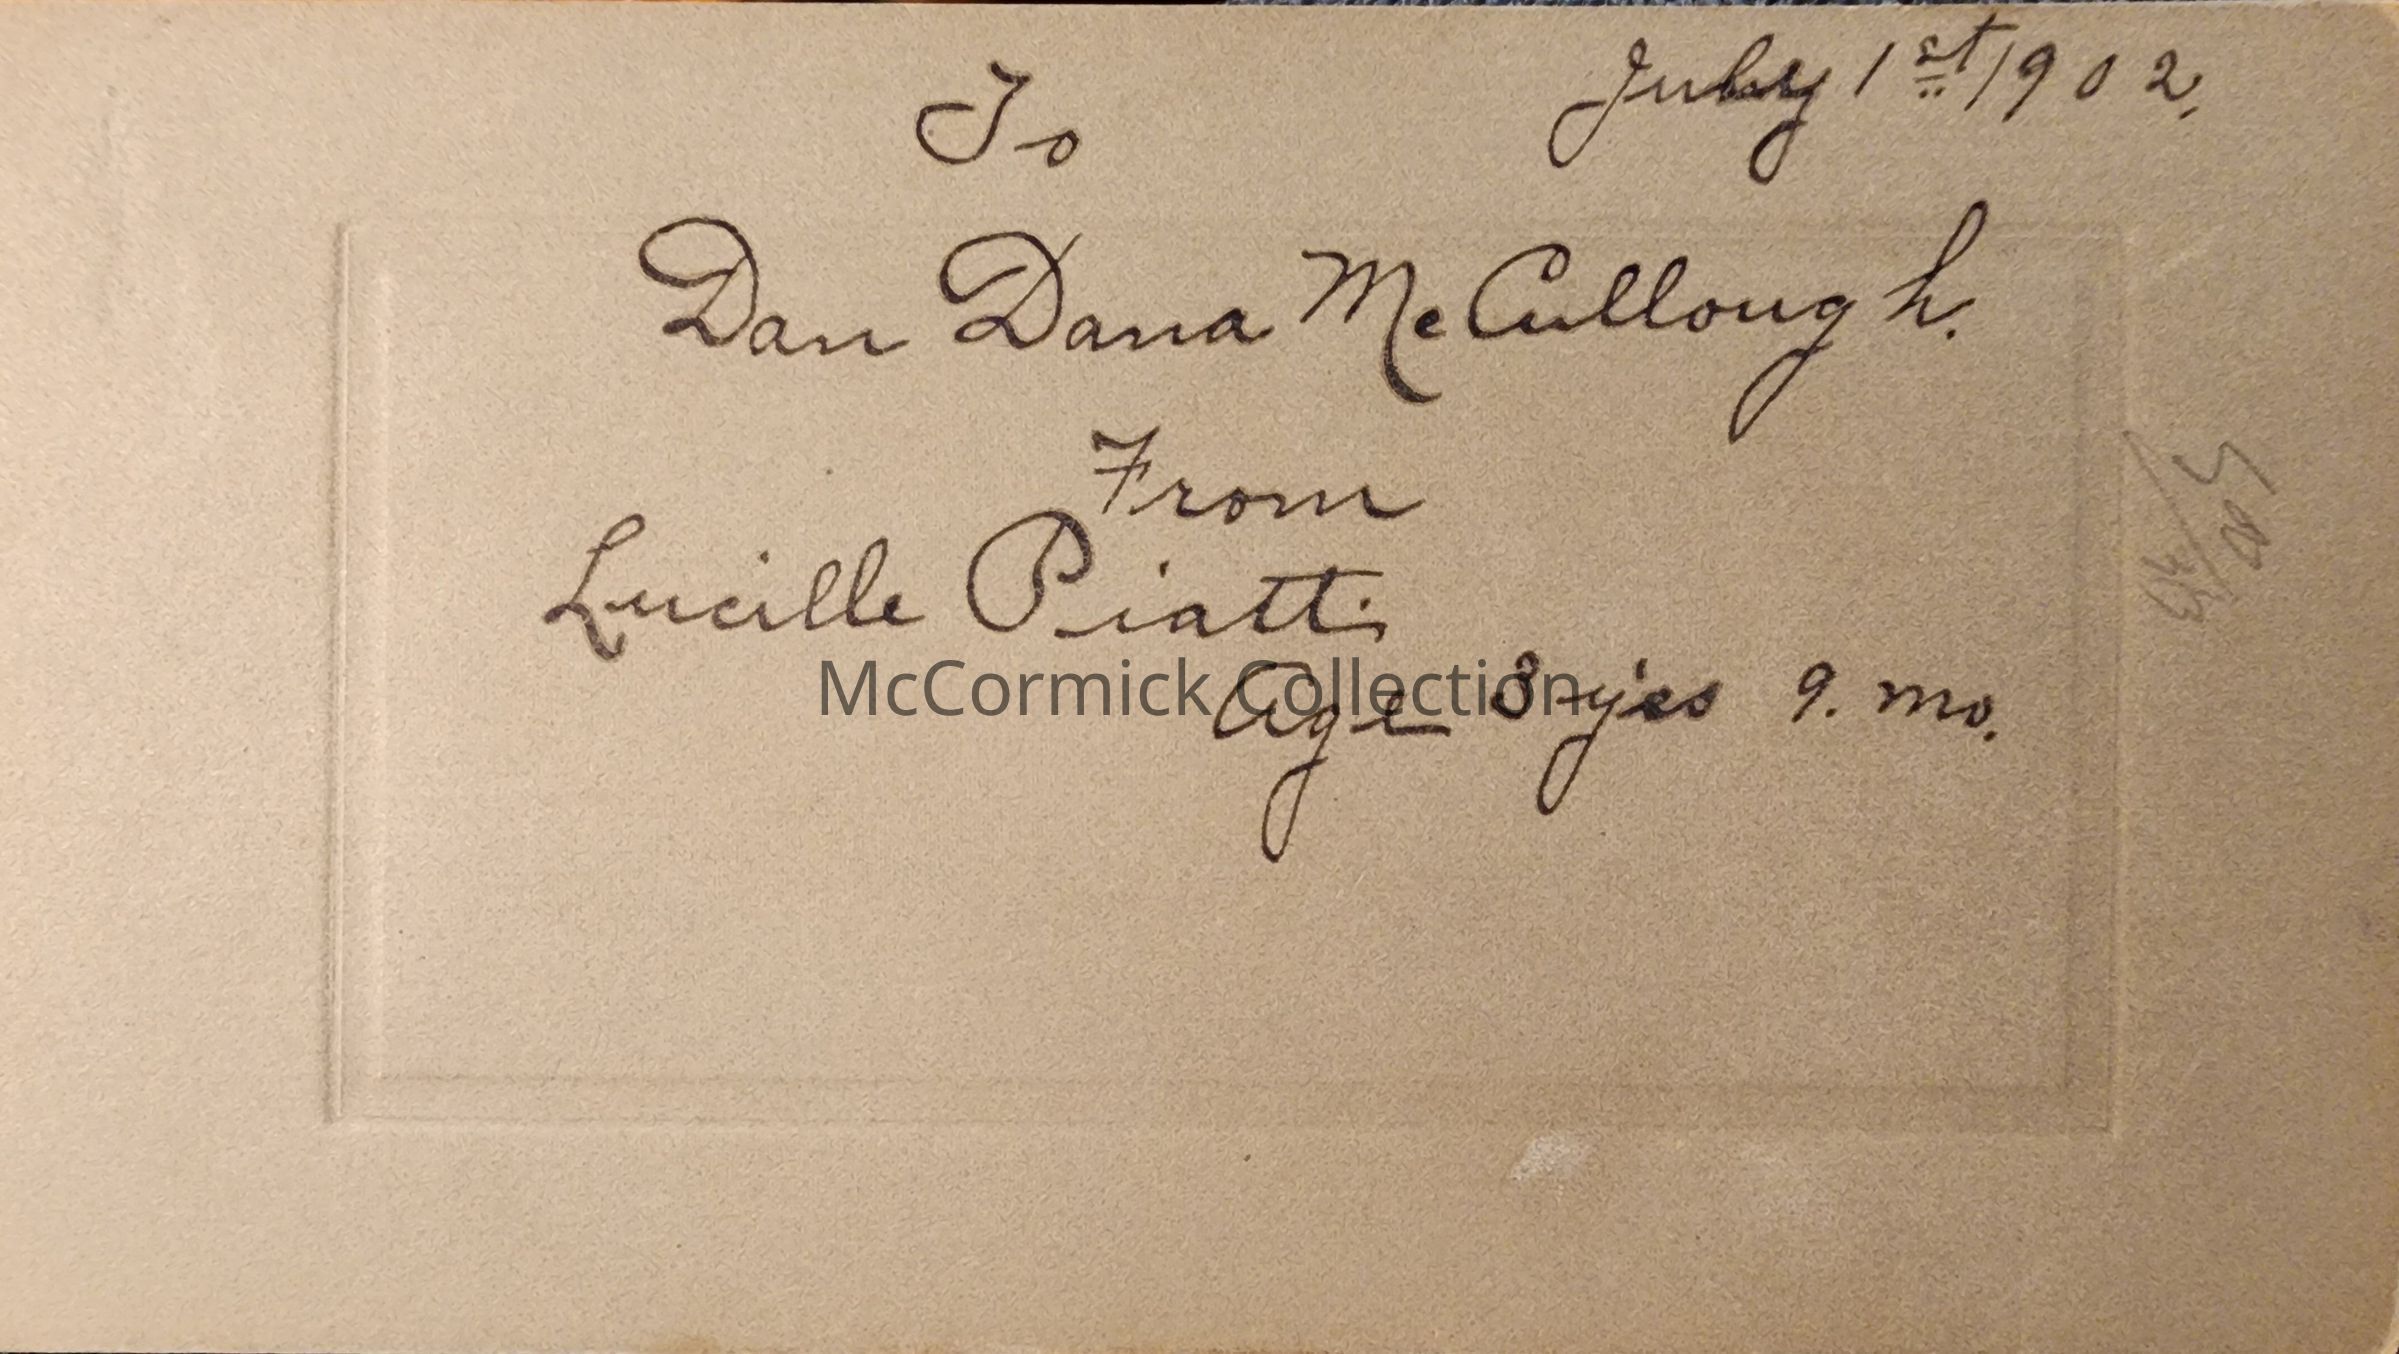 July 1st 1902.
To
Dan Dana McCullough.
From
Lucille Piatt.
Age 3 yrs 9. mo.
McCormick Collection